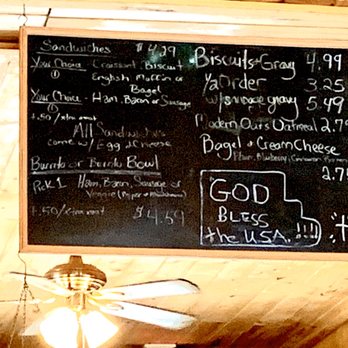 Sandwiches $4.29
Your Choice - Croissant, Biscuit
① English Muffin or
Bagel
Your Choice - Ham, Bacon or Sausage
①
+.50/xtra meat
All Sandwiches
come w/ Egg & Cheese
Burrito or Burrito Bowl
Pick 1 Ham, Bacon, Sausage or
Veggie
+.50/xtra meat $4.59
Biscuits + Gravy 4.99
1/2 Order 3.25
w/sausage gravy 5.49
Modern Ours Oatmeal 2.7
Bagel + Cream Cheese
Plain, Blueberry, Cinnamon
2.7
GOD
BLESS
the U.S.A. !!!!